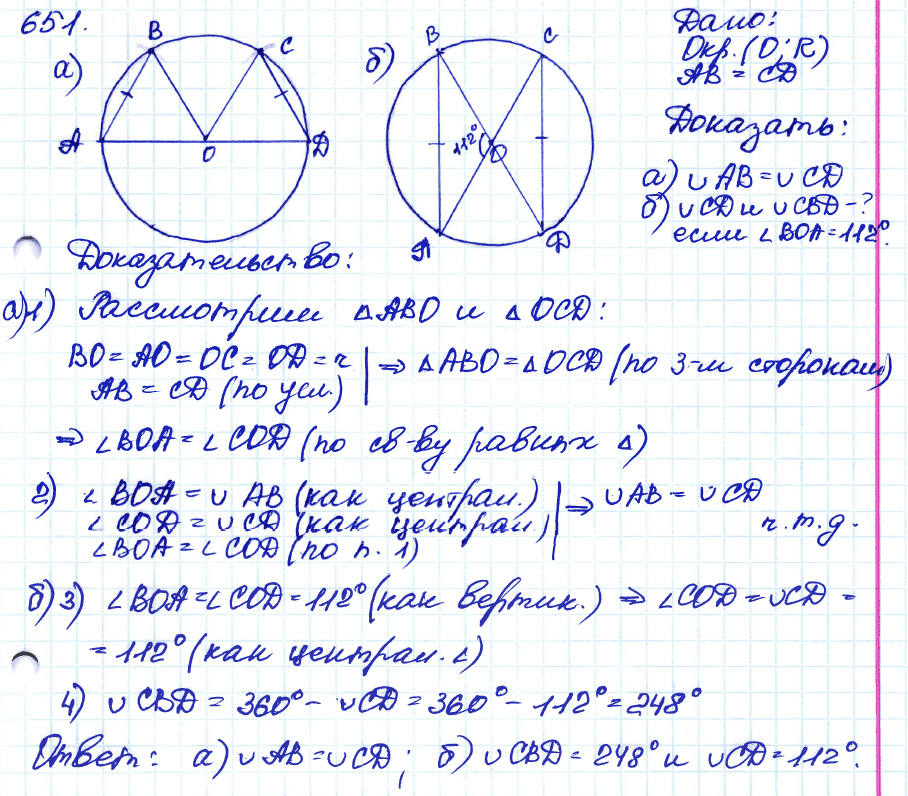 651.
а)
B
C
A
O
D
б)
B
C
112°
O
A
D
Дано:
Окр. (O; R)
AB = CD
Доказать:
а) ∪ AB = ∪ CD
б) ∪ CD и ∪ CBD - ?
если ∠BOA = 112°.
Доказательство:
а) 1) Рассмотрим △ABO и △OCD:
BO = AO = OC = OD = r | ⇒ △ABO = △OCD (по 3-м сторонам)
AB = CD (по усл.)
⇒ ∠BOA = ∠COD (по св-ву равных △)
2) ∠BOA = ∪ AB (как централ.) | ⇒ ∪AB = ∪CD
∠COD = ∪CD (как централ.) ч.т.д.
∠BOA = ∠COD (по п. 1)
б) 3) ∠BOA = ∠COD = 112° (как вертик.) ⇒ ∠COD = ∪CD =
= 112° (как централ. ∠)
4) ∪ CBD = 360° - ∪CD = 360° - 112° = 248°
Ответ: а) ∪ AB = ∪ CD ; б) ∪ CBD = 248° и ∪ CD = 112°.